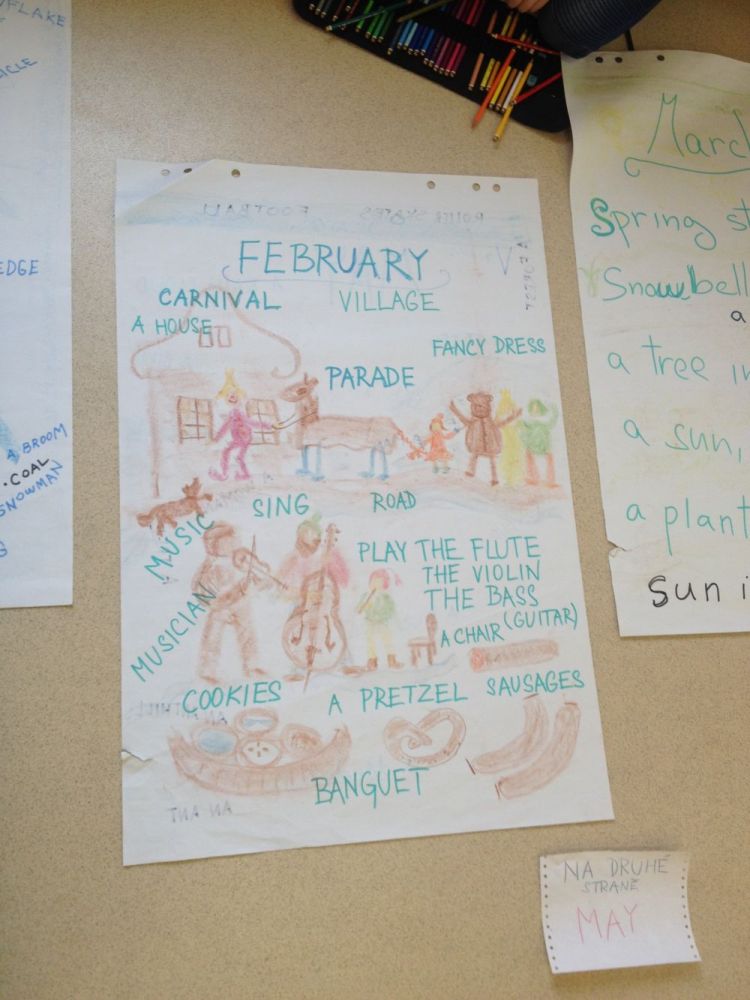 FEBRUARY
CARNIVAL
VILLAGE
A HOUSE
FANCY DRESS
PARADE
SING
ROAD
MUSIC
PLAY THE FLUTE
THE VIOLIN
THE BASS
(GUITAR)
A CHAIR
MUSICIAN
COOKIES
A PRETZEL
SAUSAGES
BANGUET
AN ANT
FOOTBALL
EDGE
A BROOM
COAL
SNOWMAN
March
Spring
Snowbell
a
a tree in
a sun,
a plant
Sun i
NA DRUHÉ
STRANĚ
MAY